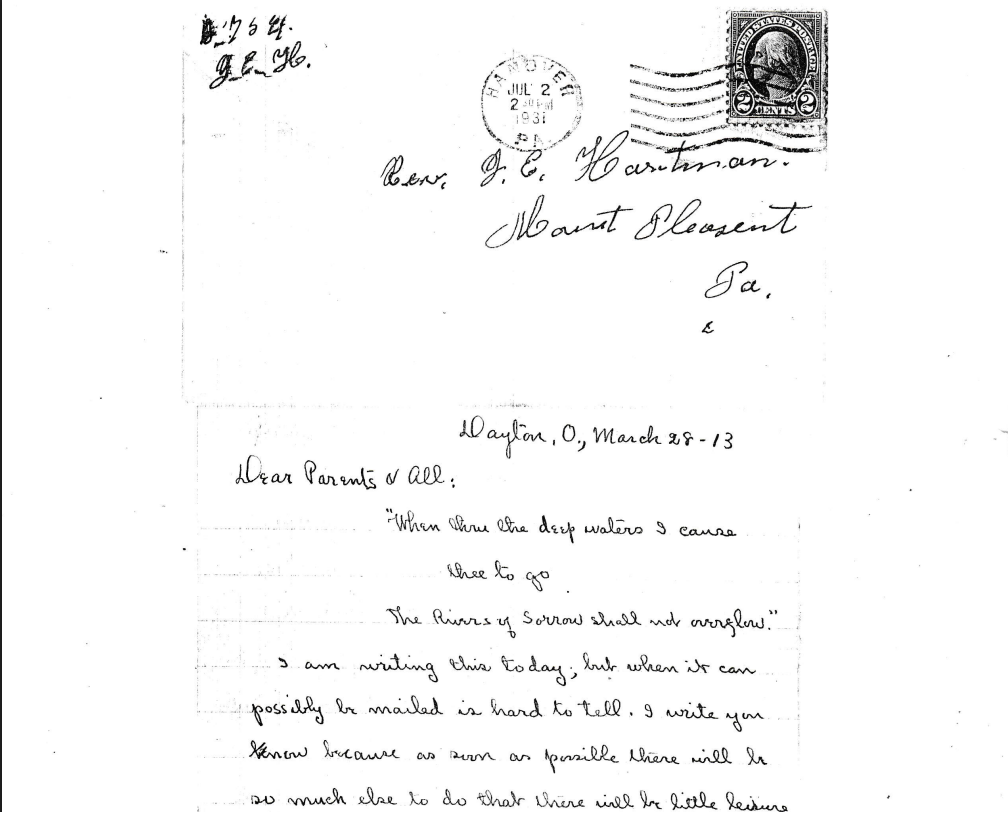 J. E. H.
HANOVER
JUL 2
2 30 PM
1931
PA.
UNITED STATES POSTAGE
2 CENTS 2
Rev. J. E. Hartman.
Mount Pleasent
Pa.
Dayton, O., March 28-13
Dear Parents & All:
"When thru the deep waters I cause
thee to go
The Rivers of Sorrow shall not overflow."
I am writing this today, but when it can
possibly be mailed is hard to tell. I write you
know because as soon as possible there will be
so much else to do that there will be little leisure